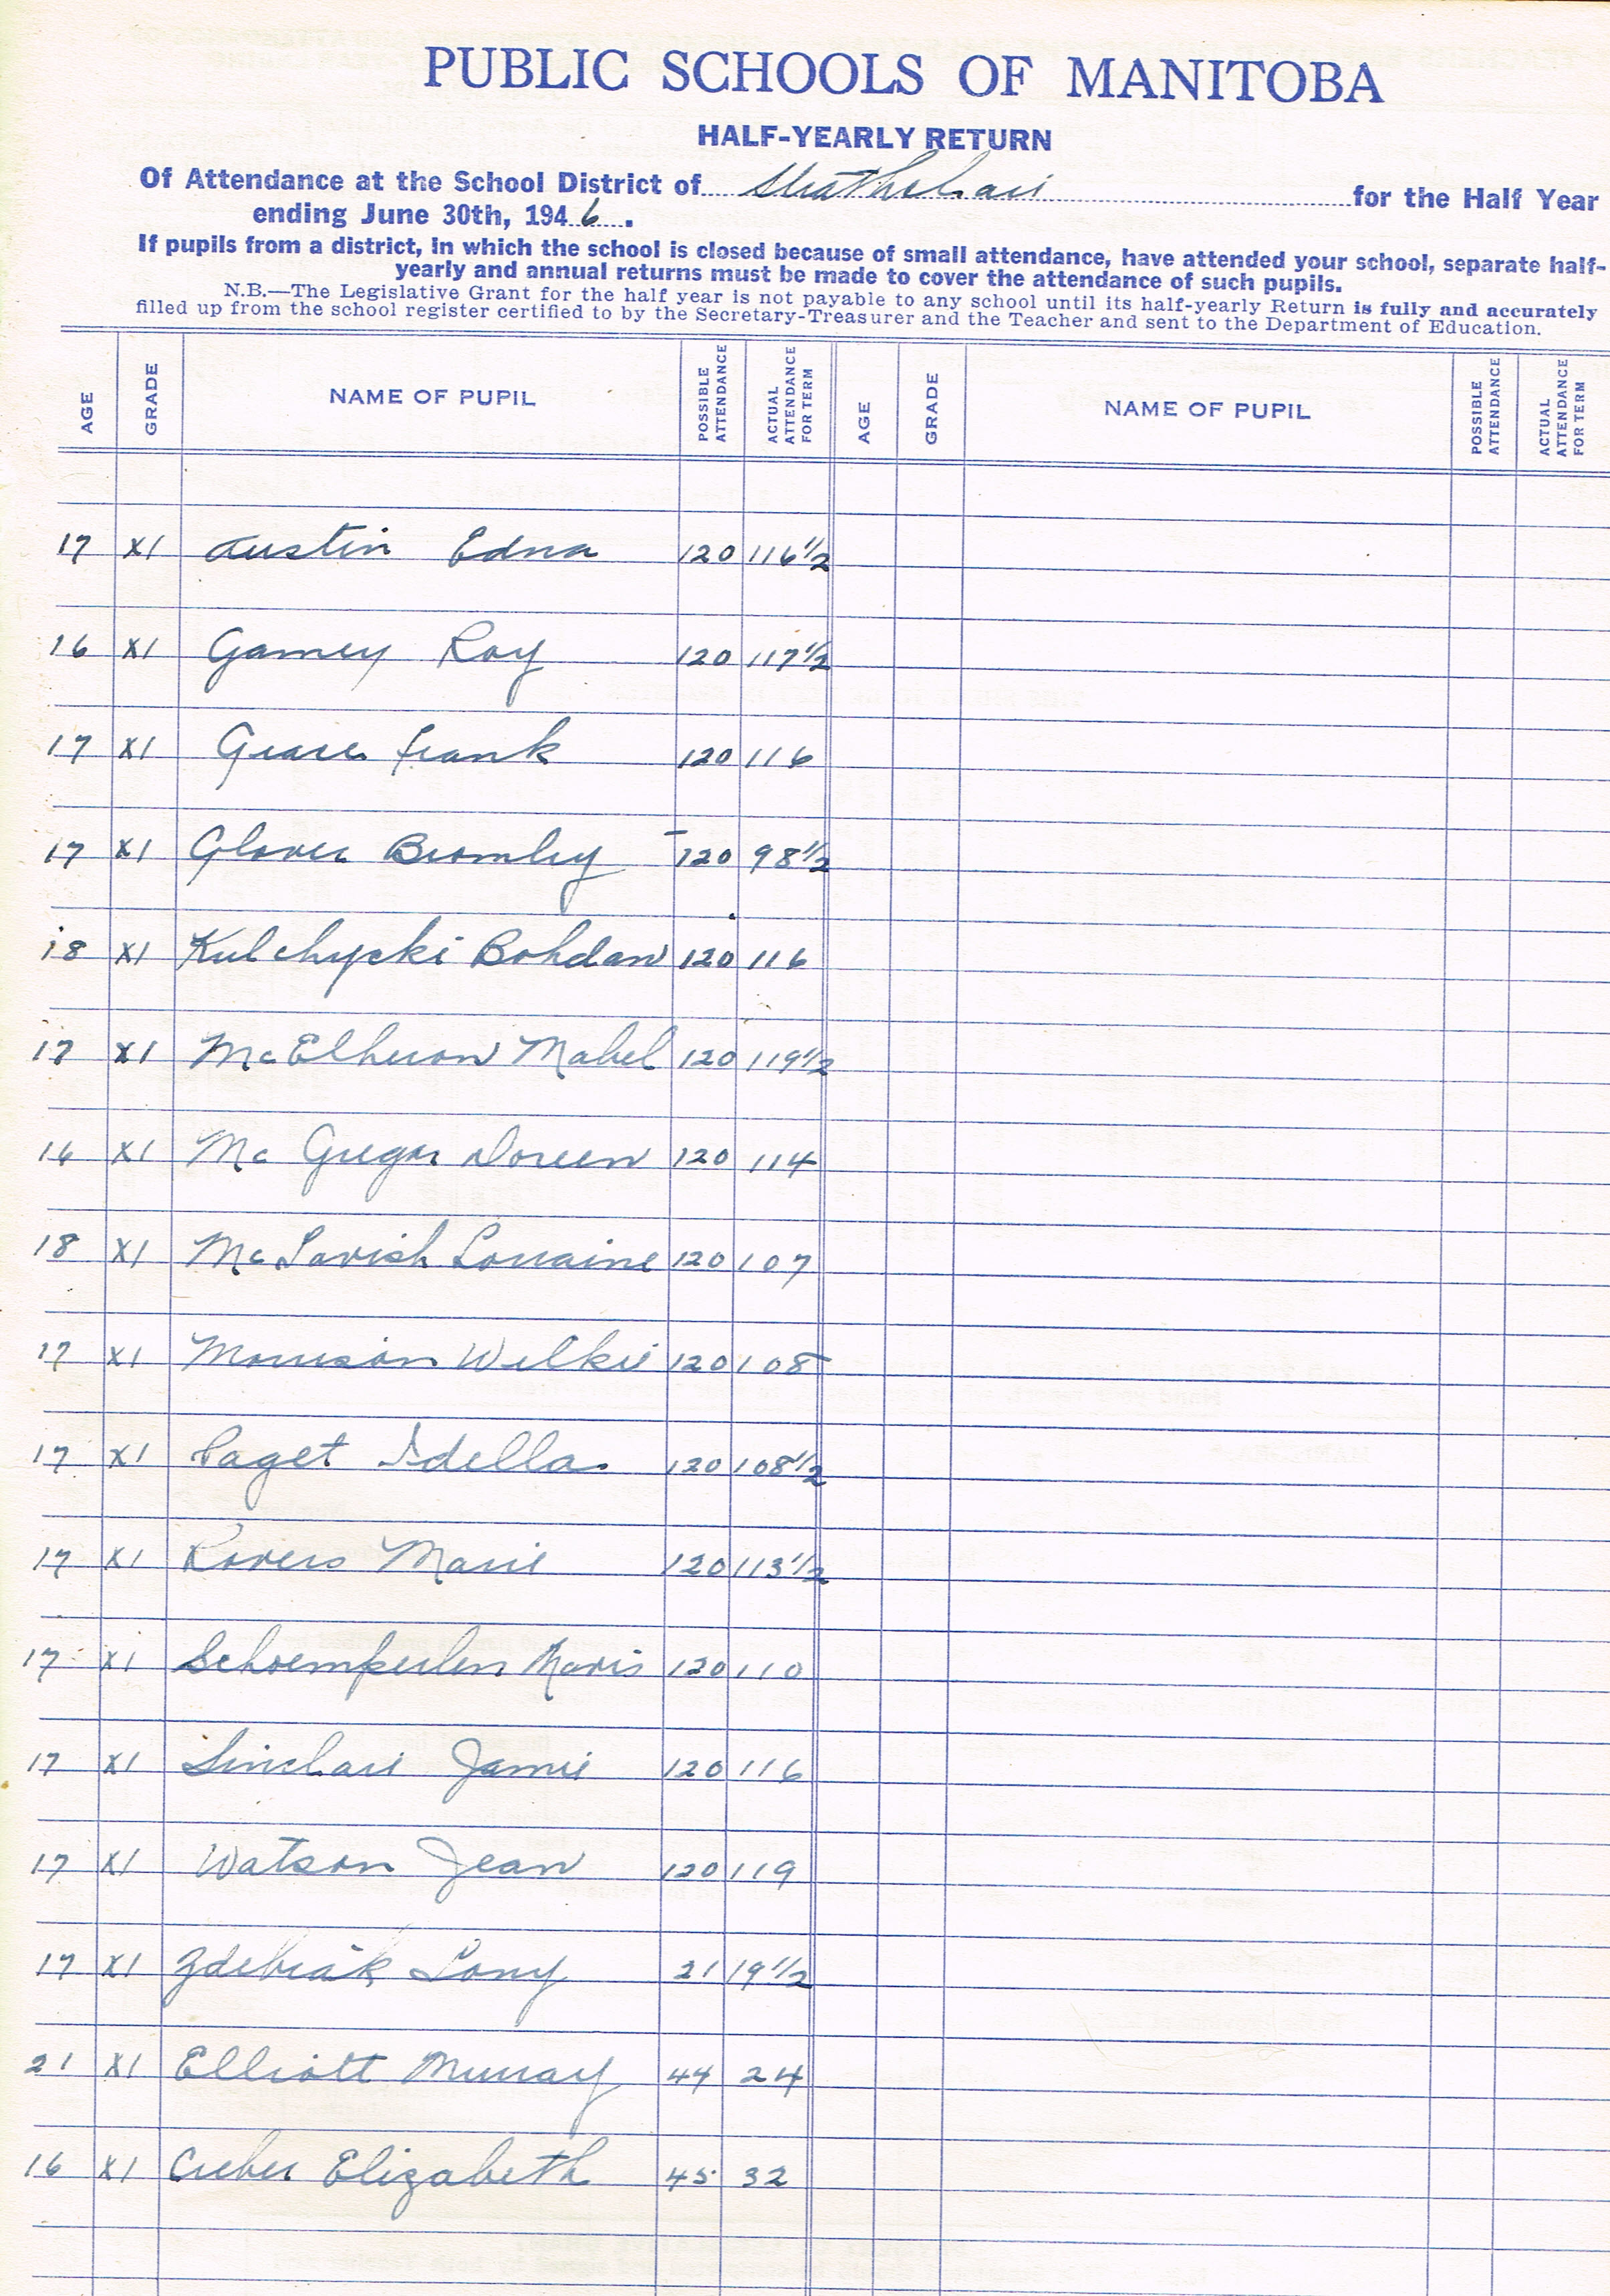 PUBLIC SCHOOLS OF MANITOBA
HALF-YEARLY RETURN
Of Attendance at the School District of Strathclair for the Half Year
ending June 30th, 1946.
If pupils from a district, in which the school is closed because of small attendance, have attended your school, separate half-
yearly and annual returns must be made to cover the attendance of such pupils.
N.B.—The Legislative Grant for the half year is not payable to any school until its half-yearly Return is fully and accurately
filled up from the school register certified to by the Secretary-Treasurer and the Teacher and sent to the Department of Education.
AGE GRADE NAME OF PUPIL POSSIBLE ATTENDANCE ACTUAL ATTENDANCE FOR TERM AGE GRADE NAME OF PUPIL POSSIBLE ATTENDANCE ACTUAL ATTENDANCE FOR TERM
17 XI Austin Edna 120 116 1/2
16 XI Gamey Roy 120 117 1/2
17 XI Grace Frank 120 116
17 XI Glover Bromley 120 98 1/2
18 XI Kulchycki Bohdan 120 116
17 XI McElheron Mabel 120 119 1/2
16 XI Mc Gregor Doreen 120 114
18 XI McTavish Lorraine 120 107
17 XI Morrison Wilkie 120 108
17 XI Paget Idella 120 108 1/2
17 XI Rovers Marie 120 113 1/2
17 XI Schoemperlen Mavis 120 110
17 XI Sinclair Jamie 120 116
17 XI Watson Jean 120 119
17 XI Zdebiak Tony 21 19 1/2
21 XI Elliott Murray 44 24
16 XI Creber Elizabeth 45 32